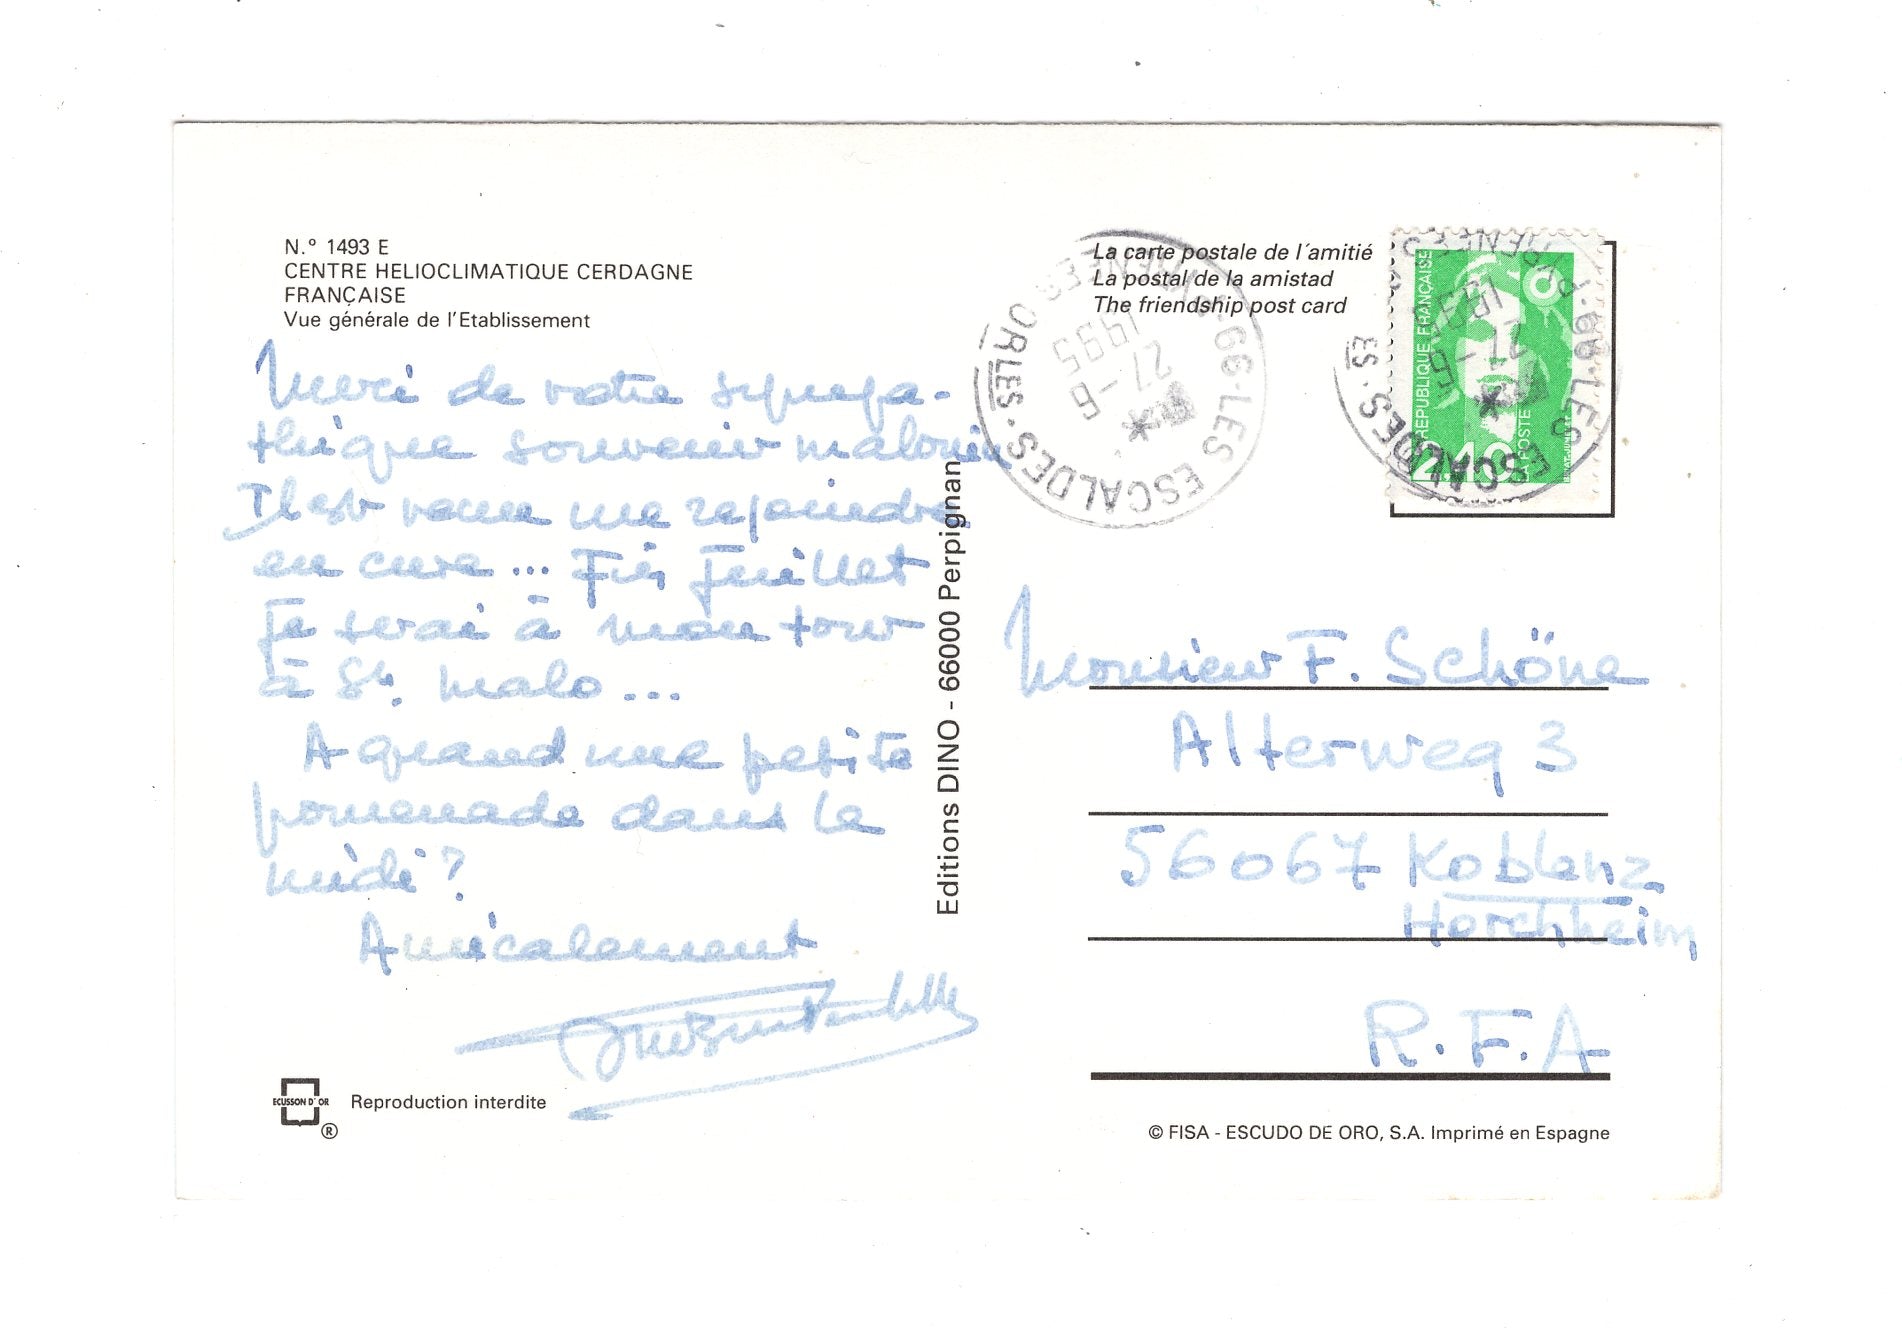 N.º 1493 E
CENTRE HELIOCLIMATIQUE CERDAGNE
FRANÇAISE
Vue générale de l'Etablissement
Merci de votre sympa-
thique souvenir malouin
Il est venu me rejoindre
en cure ... Fin Juillet
je serai à mon tour
à St. Malo ...
A quand une petite
promenade dans le
midi ?
Amicalement
ECUSSON D'OR
®
Reproduction interdite
Editions DINO - 66000 Perpignan
La carte postale de l'amitié
La postal de la amistad
The friendship post card
66 · LES ESCALDES · PYRENEES ORLES
27 - 6
1995
REPUBLIQUE FRANÇAISE
2.40
LA POSTE
66 · LES ESCALDES
27 - 6
1995
Monsieur F. Schöne
Alterweg 3
56067 Koblenz
Horchheim
R.F.A
© FISA - ESCUDO DE ORO, S.A. Imprimé en Espagne